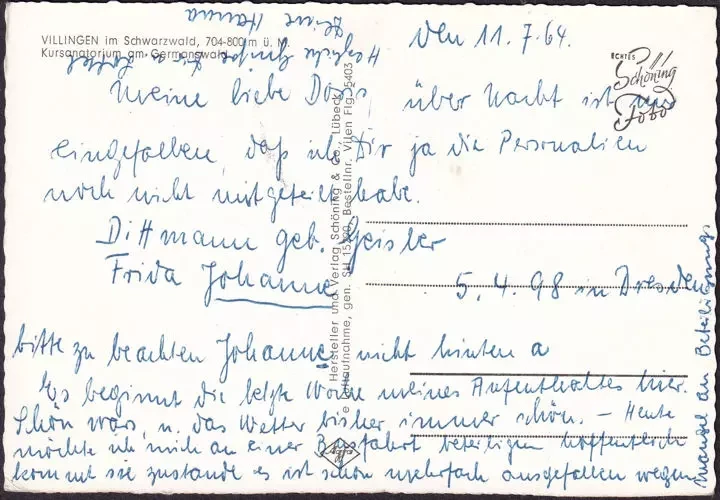 VILLINGEN im Schwarzwald, 704-800m ü. M.
Kursanatorium am Germanswald
den 11.7.64.
ECHTES
Schöning
Foto
Meine liebe Doris, über Nacht ist mir
eingefallen, daß ich Dir ja die Personalien
noch nicht mitgeteilt habe.
Dittmann geb. Geisler
Frida Johanne
5.4.98 in Dresden
bitte zu beachten Johanne, nicht hinten a
Es beginnt die letzte Woche meines Aufenthaltes hier.
Schön wars, u. das Wetter bisher immer schön. – Heute
möchte ich mich an einer Busfahrt beteiligen hoffentlich
kommt sie zustande es ist schon mehrfach ausgefallen wegen
Mangel an Beteiligung.
Herzliche
Deine Hanna
Hersteller und Verlag Schöning & Co., Lübeck
Luftaufnahme, gen. SH Bestellnr. Villen Flg. 5403
Agfa